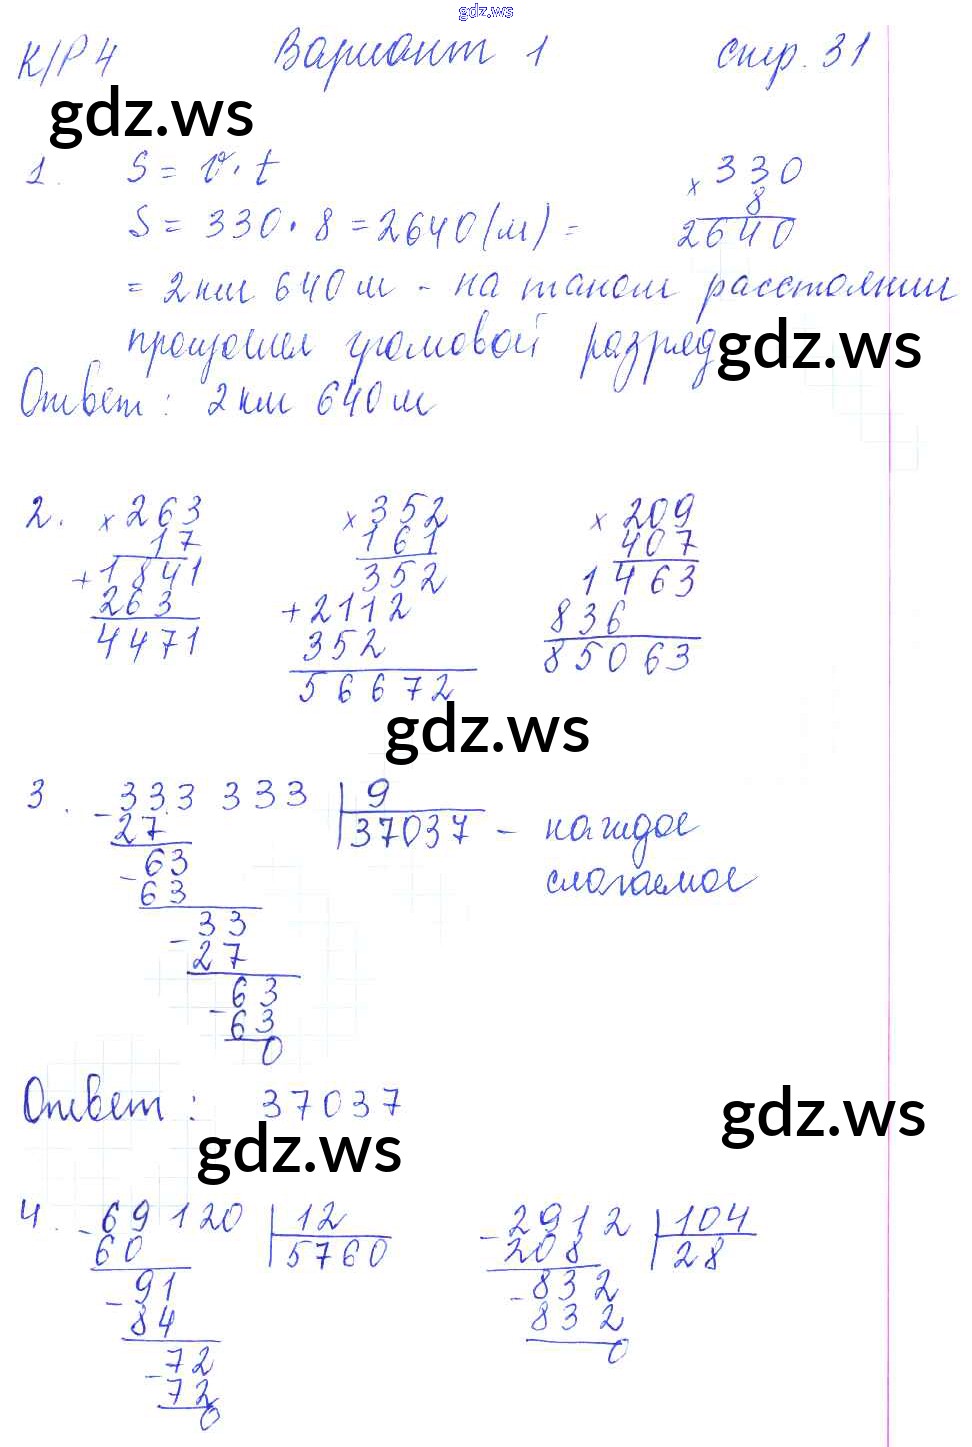 gdz.ws
К/Р 4 Вариант 1 стр. 31
gdz.ws
1. S = v · t
× 330
8
2640
S = 330 · 8 = 2640 (м) =
= 2 км 640 м - на таком расстоянии
произошел громовой разряд
gdz.ws
Ответ: 2 км 640 м
2. × 263
17
+ 1841
263
4471
× 352
161
352
+ 2112
352
56672
× 209
407
1463
836
85063
gdz.ws
3. - 333 333 | 9
27 | 37037 - каждое
слагаемое
- 63
63
- 33
27
- 63
63
0
Ответ: 37037
gdz.ws
gdz.ws
4. - 69120 | 12
60 | 5760
- 91
84
- 72
72
0
- 2912 | 104
208 | 28
- 832
832
0